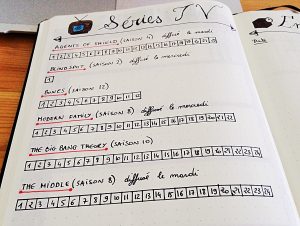 Séries TV
AGENTS OF SHIELD (SAISON 4) diffusé le mardi
1 2 3 4 5 6 7 8 9 10 11 12 13 14 15 16 17 18 19 20 21 22
BLINDSPOT (SAISON 2) diffusé le mercredi
1
BONES (SAISON 12)
1 2 3 4 5 6 7 8 9 10 11 12
MODERN FAMILY (SAISON 8) diffusé le mercredi
1 2 3 4 5 6 7 8 9 10 11 12 13 14 15 16 17 18 19 20 21 22
THE BIG BANG THEORY (SAISON 10)
1 2 3 4 5 6 7 8 9 10 11 12 13 14 15 16 17 18 19 20 21 22 23 24
THE MIDDLE (SAISON 8) diffusé le mardi
1 2 3 4 5 6 7 8 9 10 11 12 13 14 15 16 17 18 19 20 21 22 23 24